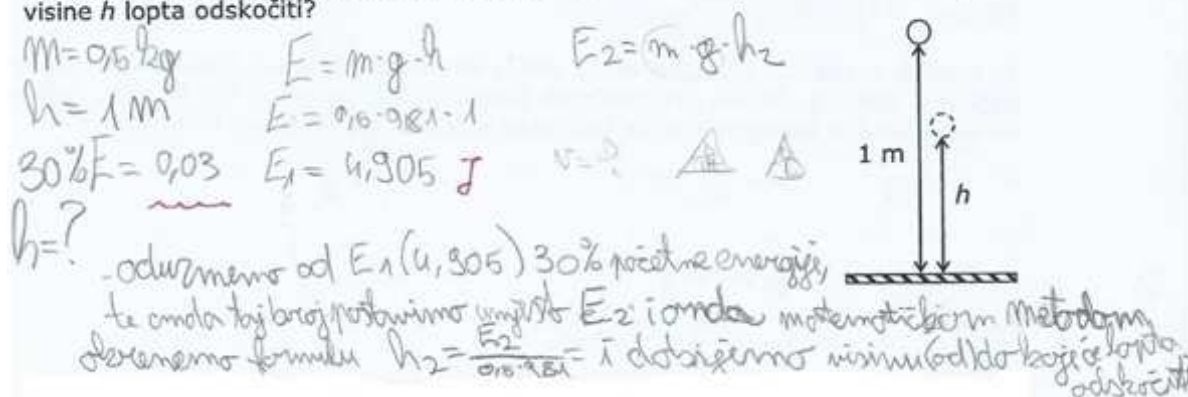 visine h lopta odskočiti?
m=0,5 kg E=m·g·h E2=m·g·h2
h=1m E=0,5·9,81·1
30%E=0,03 E1=4,905 J v=?
1 m
h
h=?
-oduzmemo od E1(4,905) 30% početne energije,
te onda taj broj postavimo umjesto E2 i onda matematičkom metodom
okrenemo formulu h2=E2/0,5·9,81= i dobijemo visinu (od) do koje će lopta
odskočiti